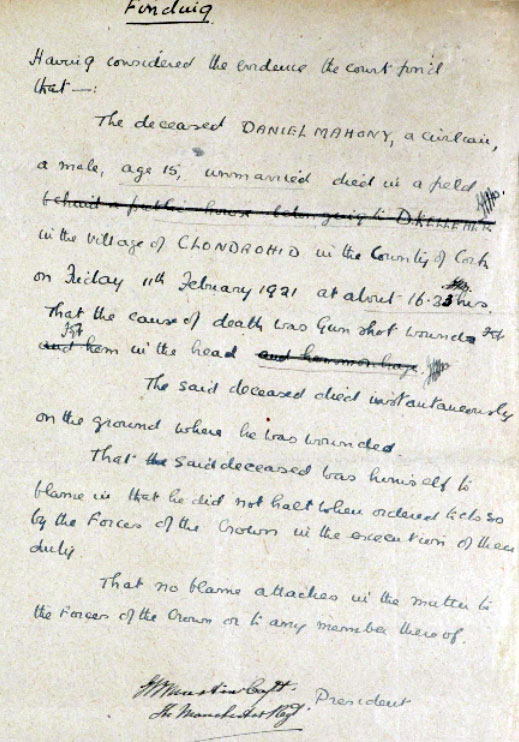 Finding
Having considered the evidence the court find
that —:
The deceased DANIEL MAHONY, a civilian,
a male, age 15, unmarried died in a field
behind a public house belonging to D. KELLEHER
in the village of CLONDROHID in the County of Cork
on Friday 11th February 1921 at about 16.33 hrs.
That the cause of death was Gun shot wounds
in the head and haemorrhage.
The said deceased died instantaneously
on the ground where he was wounded.
That the said deceased was himself to
blame in that he did not halt when ordered to do so
by the Forces of the Crown in the execution of their
duty.
That no blame attaches in the matter to
the Forces of the Crown or to any member thereof.
Capt. President
The Manchester Regt.